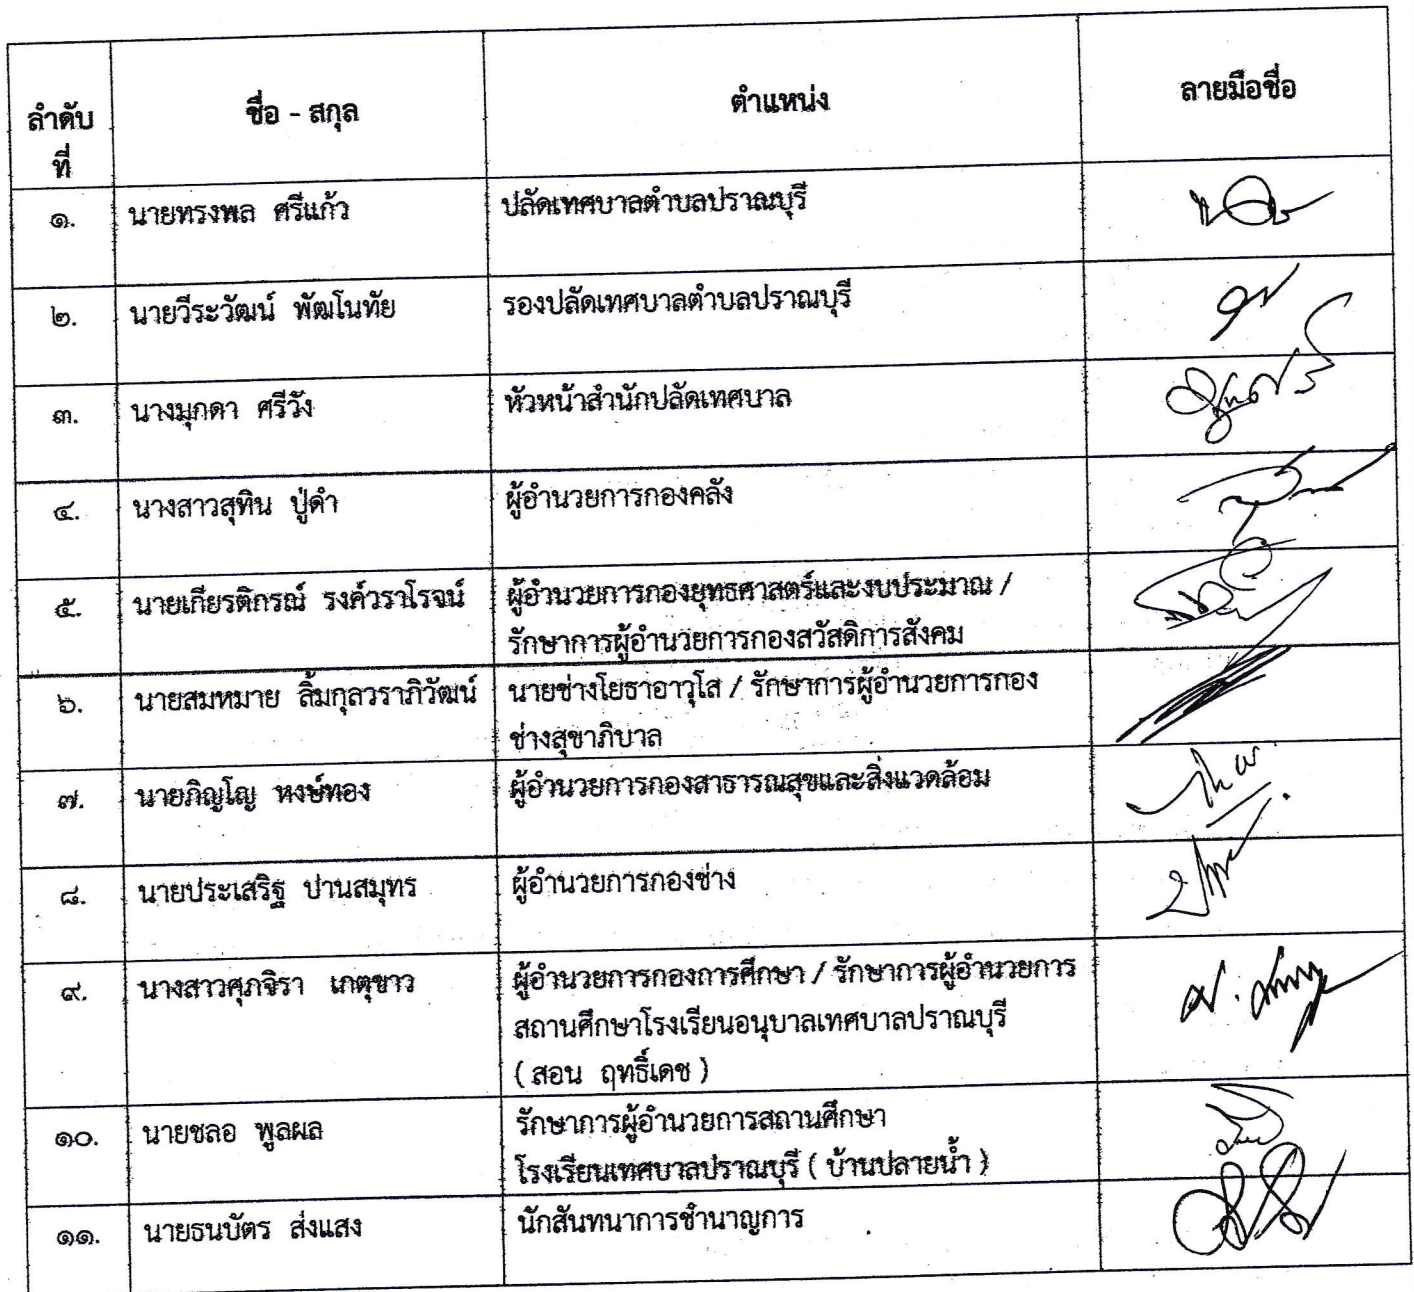 ลำดับ
ที่
ชื่อ - สกุล
ตำแหน่ง
ลายมือชื่อ
๑.
นายทรงพล ศรีแก้ว
ปลัดเทศบาลตำบลปราณบุรี
๒.
นายวีระวัฒน์ พัฒโนทัย
รองปลัดเทศบาลตำบลปราณบุรี
๓.
นางมุกดา ศรีวัง
หัวหน้าสำนักปลัดเทศบาล
๔.
นางสาวสุทิน ปู่ดำ
ผู้อำนวยการกองคลัง
๕.
นายเกียรติกรณ์ รงค์วราโรจน์
ผู้อำนวยการกองยุทธศาสตร์และงบประมาณ /
รักษาการผู้อำนวยการกองสวัสดิการสังคม
๖.
นายสมหมาย ลิ้มกุลวราภิวัฒน์
นายช่างโยธาอาวุโส / รักษาการผู้อำนวยการกอง
ช่างสุขาภิบาล
๗.
นายภิญโญ หงษ์ทอง
ผู้อำนวยการกองสาธารณสุขและสิ่งแวดล้อม
๘.
นายประเสริฐ ปานสมุทร
ผู้อำนวยการกองช่าง
๙.
นางสาวศุภจิรา เกตุขาว
ผู้อำนวยการกองการศึกษา / รักษาการผู้อำนวยการ
สถานศึกษาโรงเรียนอนุบาลเทศบาลปราณบุรี
( สอน ฤทธิ์เดช )
๑๐.
นายชลอ พูลผล
รักษาการผู้อำนวยการสถานศึกษา
โรงเรียนเทศบาลปราณบุรี ( บ้านปลายน้ำ )
๑๑.
นายธนบัตร ส่งแสง
นักสันทนาการชำนาญการ